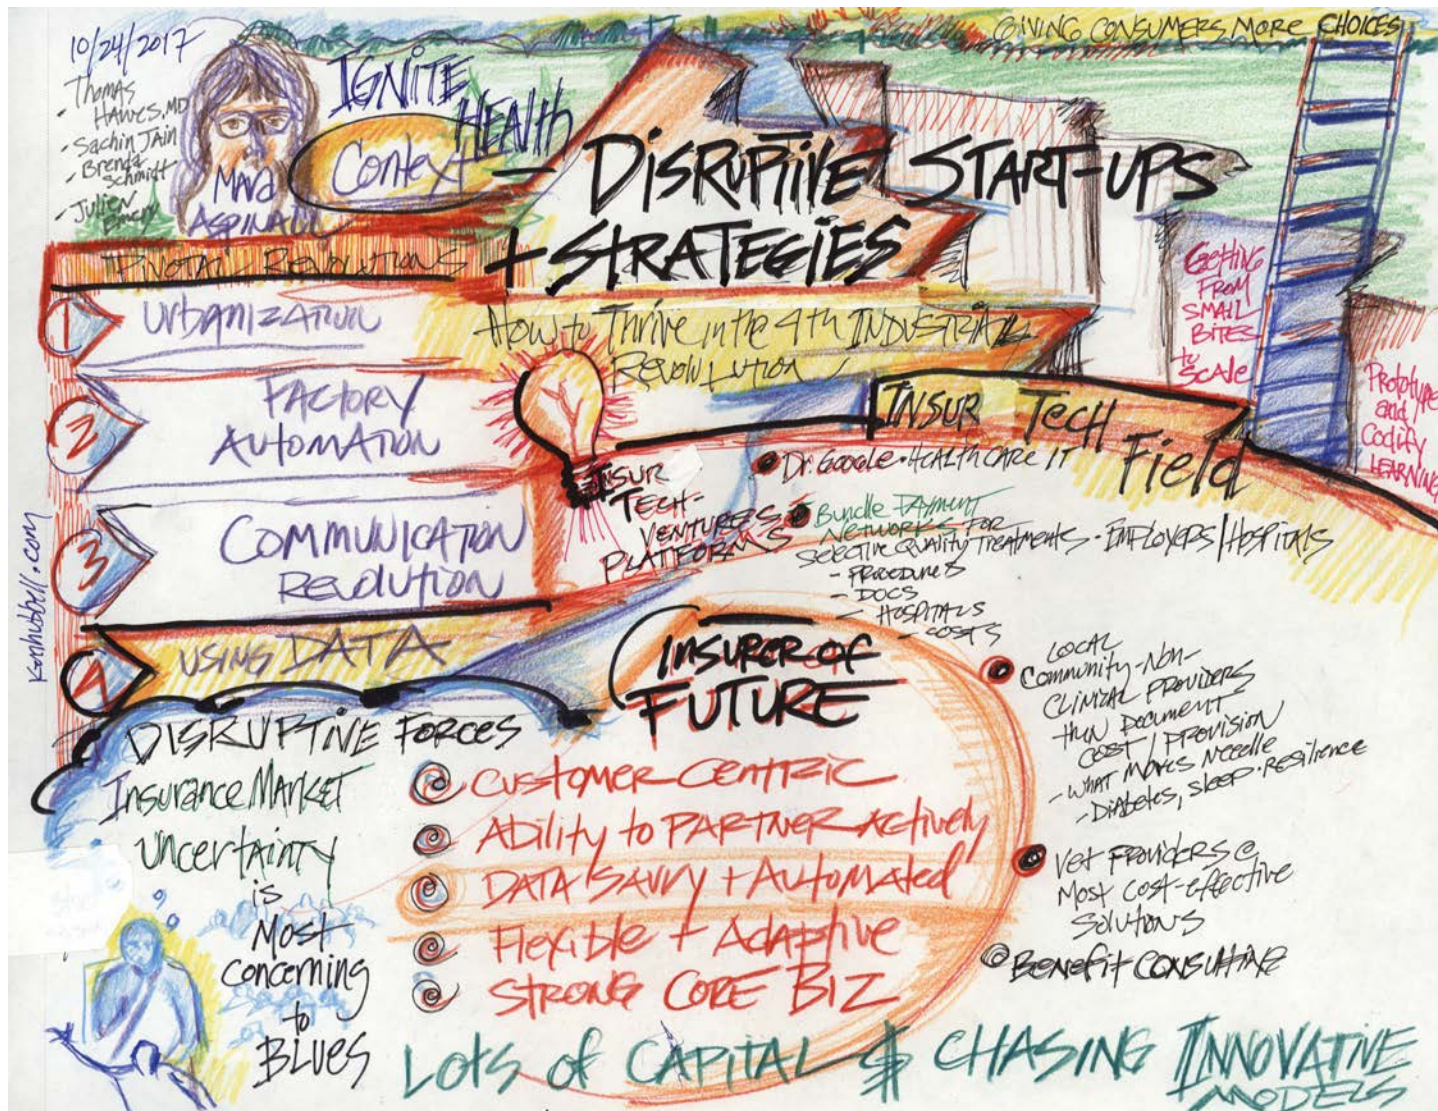 10/24/2017
- Thomas
HAWES, MD
- Sachin JAIN
- Brenda
Schmidt
- Julien
Emery
MARA
ASPINALL
IGNITE
HEALTH
Context
- DISRUPTIVE START-UPS
+ STRATEGIES
GIVING CONSUMERS MORE CHOICES
PIVOTAL REVOLUTIONS
1 URBANIZATION
2 FACTORY
AUTOMATION
3 COMMUNICATION
REVOLUTION
4 USING DATA
How to Thrive in the 4th INDUSTRIAL
REVOLUTION
Getting
FROM
SMALL
BITES
to
SCALE
Prototype
and
Codify
LEARNING
INSUR TECH
Field
INSUR
TECH-
VENTURES
PLATFORMS
Dr. GOOGLE • HEALTHCARE IT
Bundle PAYMENT
NETWORKS FOR
Selective QUALITY TREATMENTS - EMPLOYERS/HOSPITALS
- PROCEDURES
- DOCS
- HOSPITALS
- COSTS
LOCAL
Community-Non-
CLINICAL PROVIDERS
Document
COST / PROVISION
- WHAT MOVES Needle
- Diabetes, sleep • Resilience
Vet PROVIDERS @
Most cost-effective
Solutions
BENEFIT CONSULTING
KenHubbell.com
DISRUPTIVE FORCES
Insurance Market
Uncertainty
is
Most
concerning
to
BLUES
INSURER OF
FUTURE
CUSTOMER CENTRIC
Ability to PARTNER Actively
DATA SAVVY + Automated
Flexible + Adaptive
STRONG CORE BIZ
LOTS of CAPITAL $ CHASING INNOVATIVE
MODELS